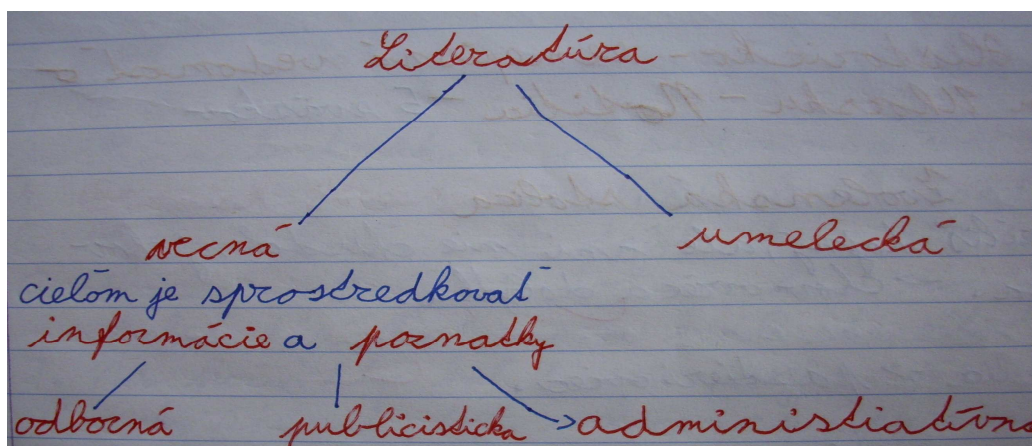 Literatúra
vecná umelecká
cielóm je sprostredkovať
informácie a poznatky
odborná publicisticka administiatívn